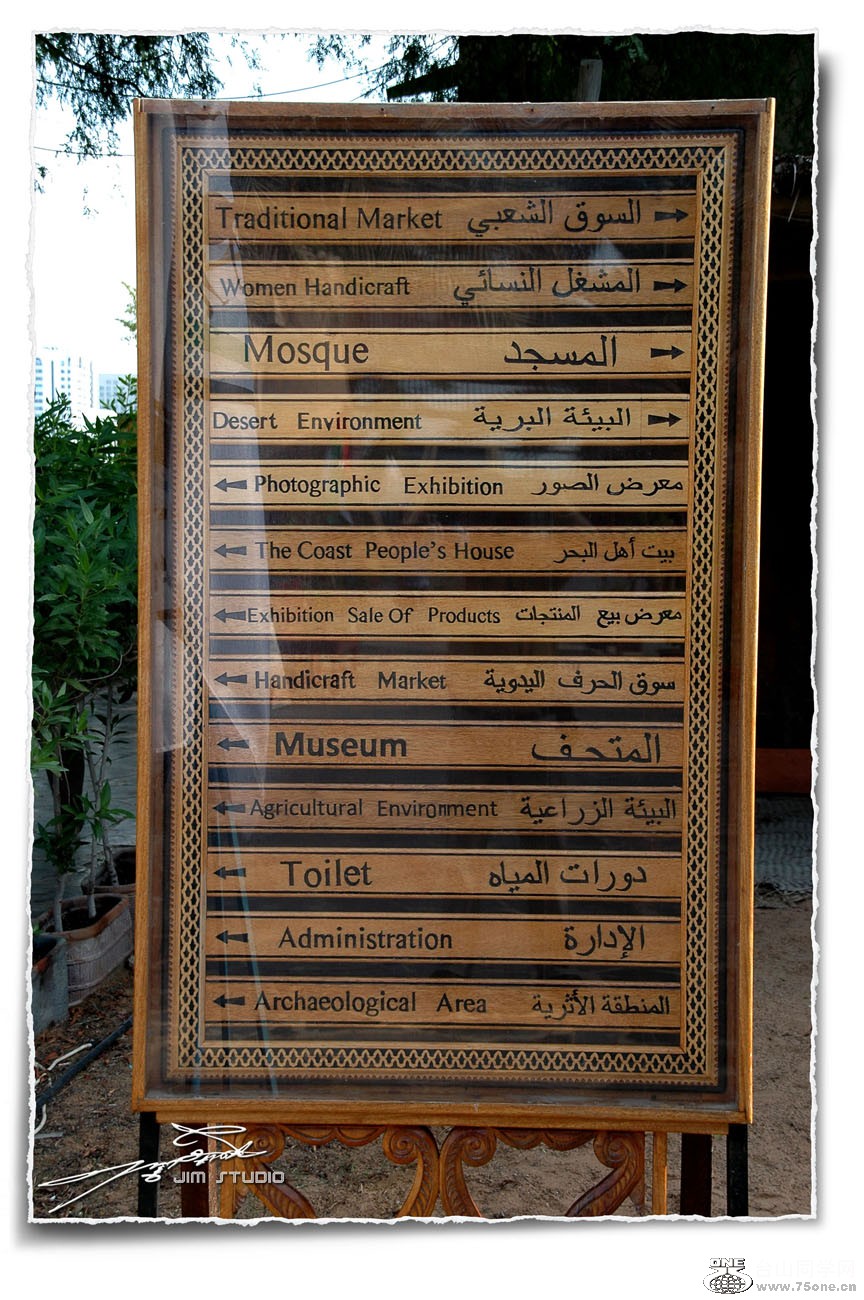 Traditional Market السوق الشعبي
Women Handicraft المشغل النسائي
Mosque المسجد
Desert Environment البيئة البرية
Photographic Exhibition معرض الصور
The Coast People's House بيت أهل البحر
Exhibition Sale Of Products معرض بيع المنتجات
Handicraft Market سوق الحرف اليدوية
Museum المتحف
Agricultural Environment البيئة الزراعية
Toilet دورات المياه
Administration الإدارة
Archaeological Area المنطقة الأثرية
JIM STUDIO
ONE
www.75one.cn